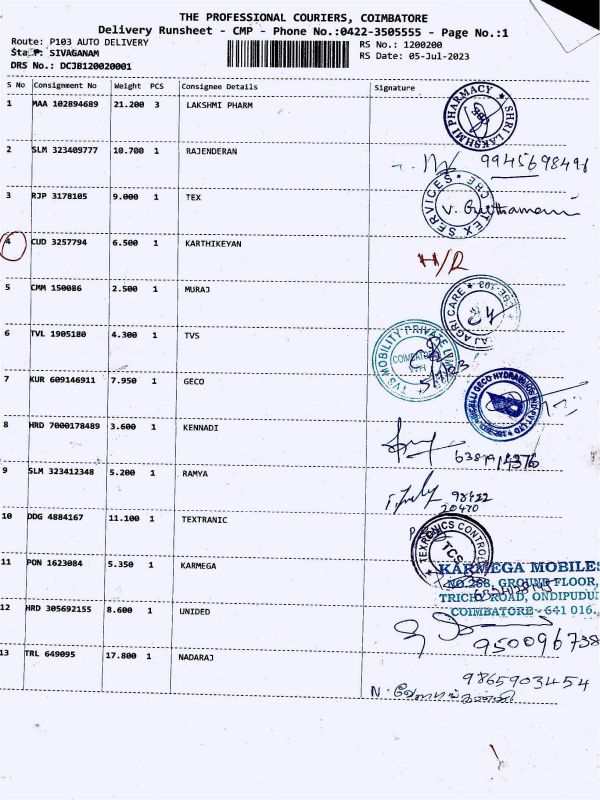 THE PROFESSIONAL COURIERS, COIMBATORE
Delivery Runsheet - CMP - Phone No.:0422-3505555 - Page No.:1
Route: P103 AUTO DELIVERY
RS No.: 1200200
SIVAGANAM
RS Date: 05-Jul-2023
DRS No.: DCJB120020001
S No Consignment No Weight PCS Consignee Details Signature
1 MAA 102894689 21.200 3 LAKSHMI PHARM
SHRI LAKSHMI PHARMACY
2 SLM 323409777 10.700 1 RAJENDERAN
9945698498
3 RJP 3178105 9.000 1 TEX
TEX SERVICES
4 CUD 3257794 6.500 1 KARTHIKEYAN
H/R
5 CMM 150086 2.500 1 MURAJ
AGRI CARE
6 TVL 1905180 4.300 1 TVS
TVS MOBILITY PRIVATE
5/7/23
7 KUR 609146911 7.950 1 GECO
GECO HYDRAULICS
8 HRD 7000178489 3.600 1 KENNADI
9 SLM 323412348 5.200 1 RAMYA
98422
20470
10 DDG 4884167 11.100 1 TEXTRANIC
TEXTRONICS CONTROL
TCS
11 PON 1623084 5.350 1 KARMEGA
KARMEGA MOBILES
NO.268, GROUND FLOOR,
TRICHY ROAD, ONDIPUDUR
COIMBATORE - 641 016.
12 HRD 305692155 8.600 1 UNIDED
950096738
13 TRL 649095 17.800 1 NADARAJ
9865903454